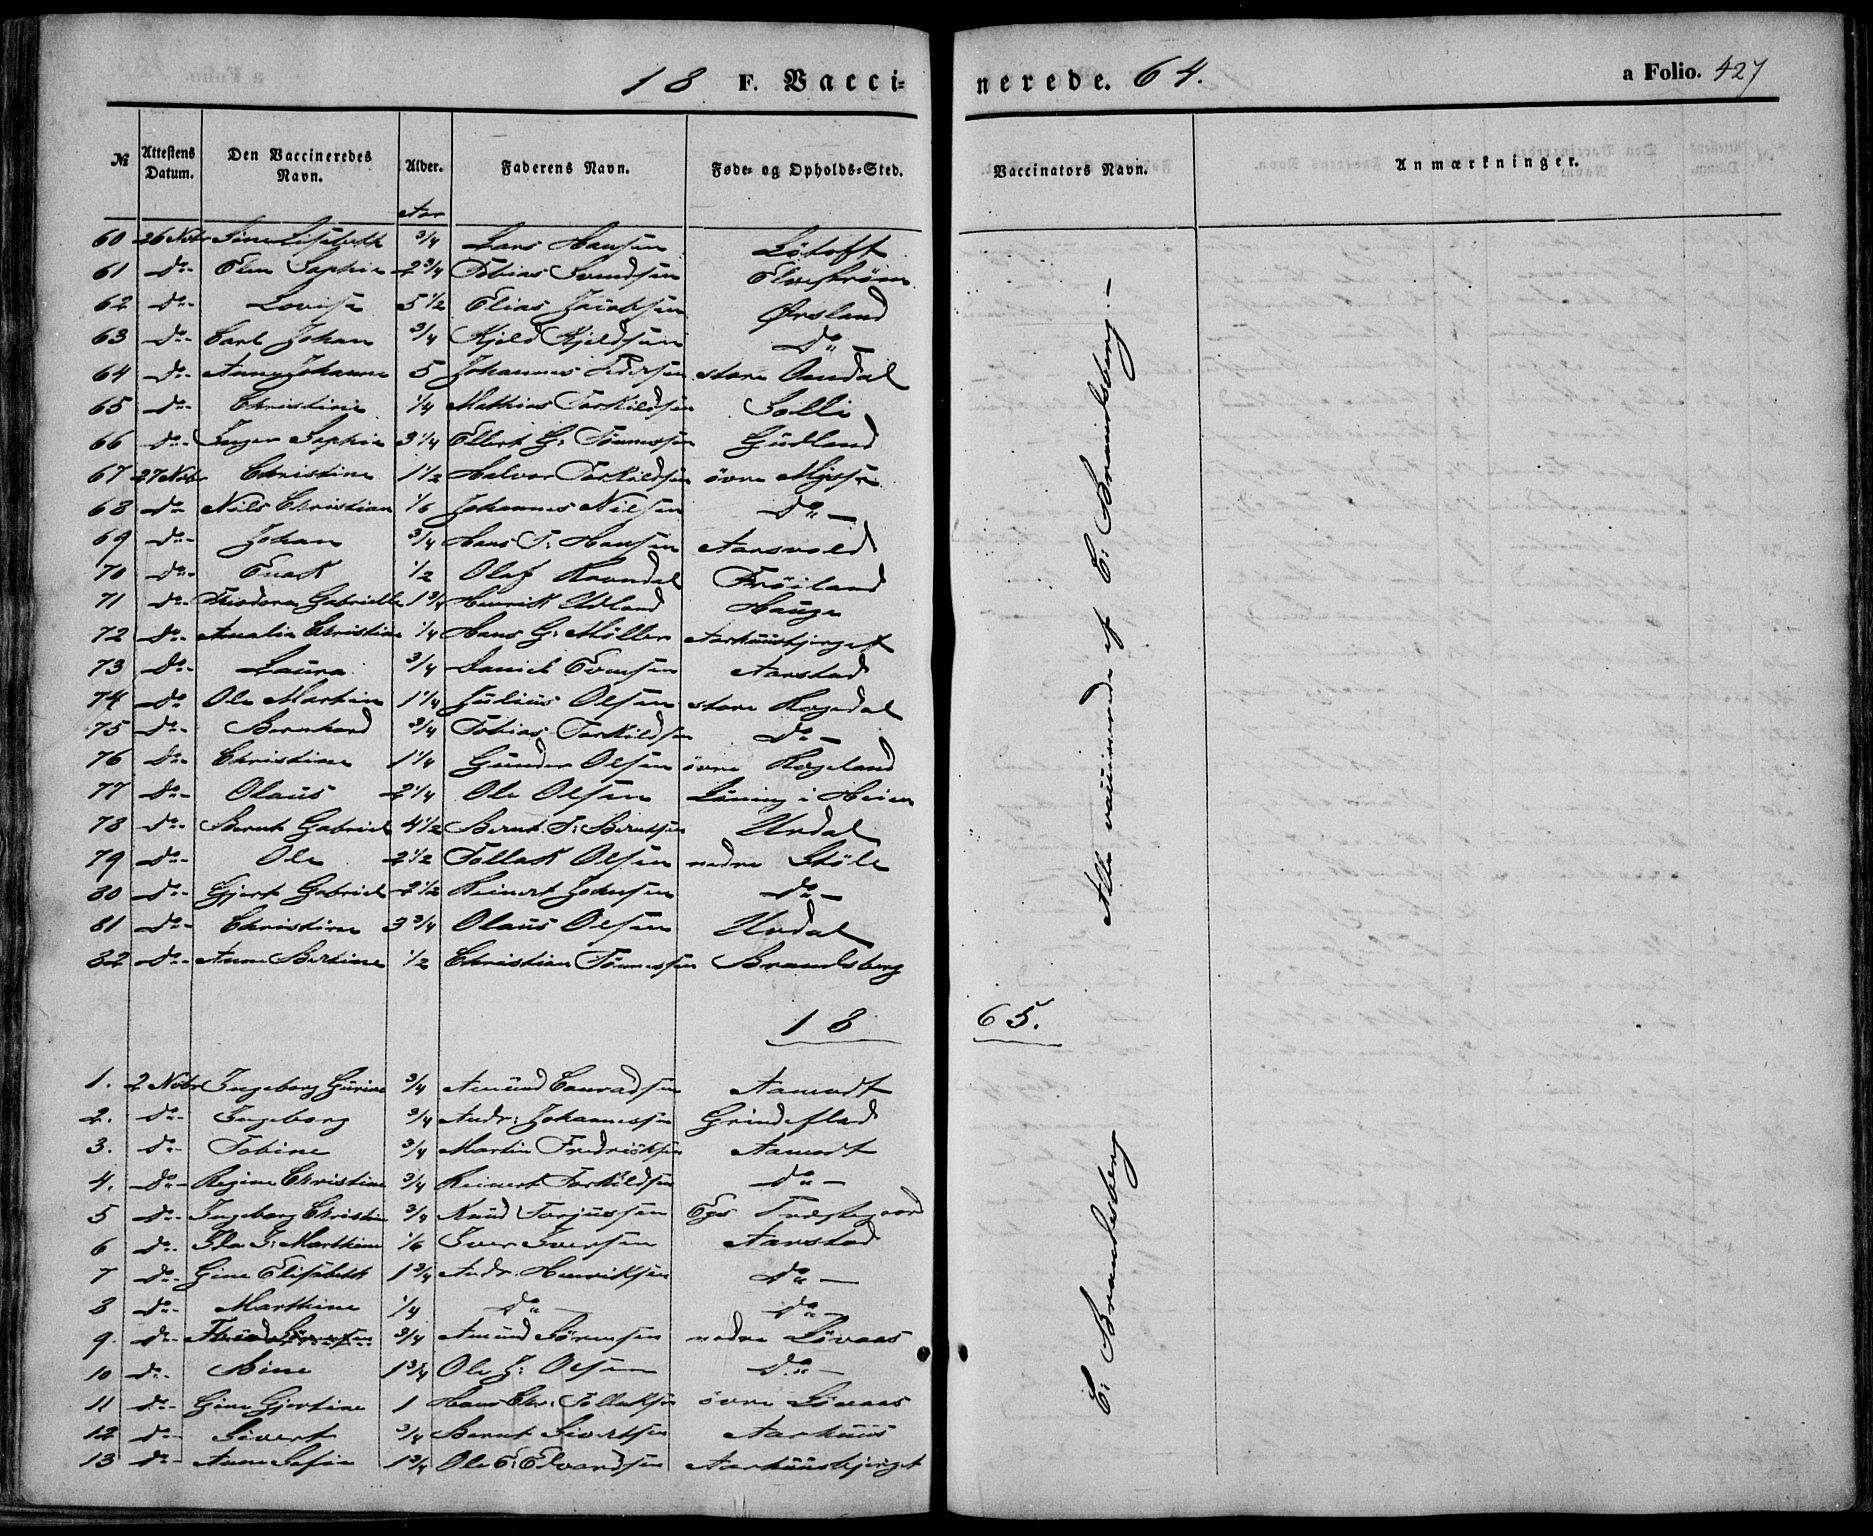 18 F. Vaccinerede. 64.
a Folio. 427
№ Attestens Datum. Den Vaccineredes Navn. Alder. Faderens Navn. Føde- og Opholds-Sted. Vaccinators Navn. Anmærkninger.
Aar
60 26 Nobr Sine Lisebeth 3/4 Lars Hansen Løtoft
61 do- Elen Sophie 2 3/4 Tobias Svendsen Elvestrøm
62 do- Lovise 5 1/2 Elias Jacobsen Ørsland
63 do- Carl Johan 3/4 Kjeld Kjeldsen do-
64 do- Anne Johanne 5 Johannes Pedersen store Omdal
65 do- Christine 1/4 Mathias Torkildsen Solli
66 do- Inger Sophie 3 1/4 Ellert G: Tønnessen Gudland
67 27 Nobr Christine 1 1/2 Halvor Torkildsen øvre Mysse
68 do- Nils Christian 1/6 Johannes Nilsen do-
69 do- Johan 3/4 Hans T: Hansen Aarsvold
70 do- Enok 1/2 Olaf Ravndal Frøiland
71 do- Teodora Gabrielle 1 3/4 Henrik Udland Hauge
72 do- Amalie Christine 1/4 Hans G: Møller Aarhuusbjerget
73 do- Laura 3/4 Daniel Evensen Aarstad
74 do- Ole Martin 1 1/4 Julius Olsen store Ragedal
75 do- Bernhard 3/4 Tobias Torkildsen do-
76 do- Christine 1 1/4 Gunder Olsen øvre Rogeland
77 do- Olaus 2 1/4 Ole Olsen Løning i Heien
78 do- Bernt Gabriel 4 1/2 Bernt T: Berntsen Urdal
79 do- Ole 2 1/2 Tollak Olsen nedre Støle
80 do- Gjert Gabriel 2 1/2 Reinert Johnsen do-
81 do- Christine 3 3/4 Olaus Olsen Urdal
82 do- Anne Bertine 1/2 Christian Tønnessen Brandsberg
Alle vaccinerede af E: Brandsberg.-
18 65.
1. 2 Nobr Ingeborg Gurine 3/4 Amund Conradsen Aamodt
2. do- Ingeborg 3/4 Andr: Johannessen Grindeflad
3. do- Tobine 3/4 Martin Fredriksen Aamodt
4. do- Regine Christine 3/4 Reinert Torkildsen do-
5 do- Ingeborg Christin 3/4 Knud Torjussen Egs Præstegaard
6 do- Ida J: Marthine 1/6 Iver Iversen Aarstad
7 do- Gine Elisabeth 1 3/4 Andr. Henriksen do-
8 do- Marthine 1/4 do- do-
9. do- 3/4 Amund Sørensen nedre Løvaas
10 do- Sine 1 3/4 Ole J: Olsen do-
11 do- Gine Gjertine 1 Hans Chr: Tollaksen øvre Løvaas
12 do- Sivert 3/4 Bernt Sivertsen Aarhuus
13 do- Anne Sofie 1 3/4 Ole E: Edvardsen Aarhuusbjerget
E: Brandsberg